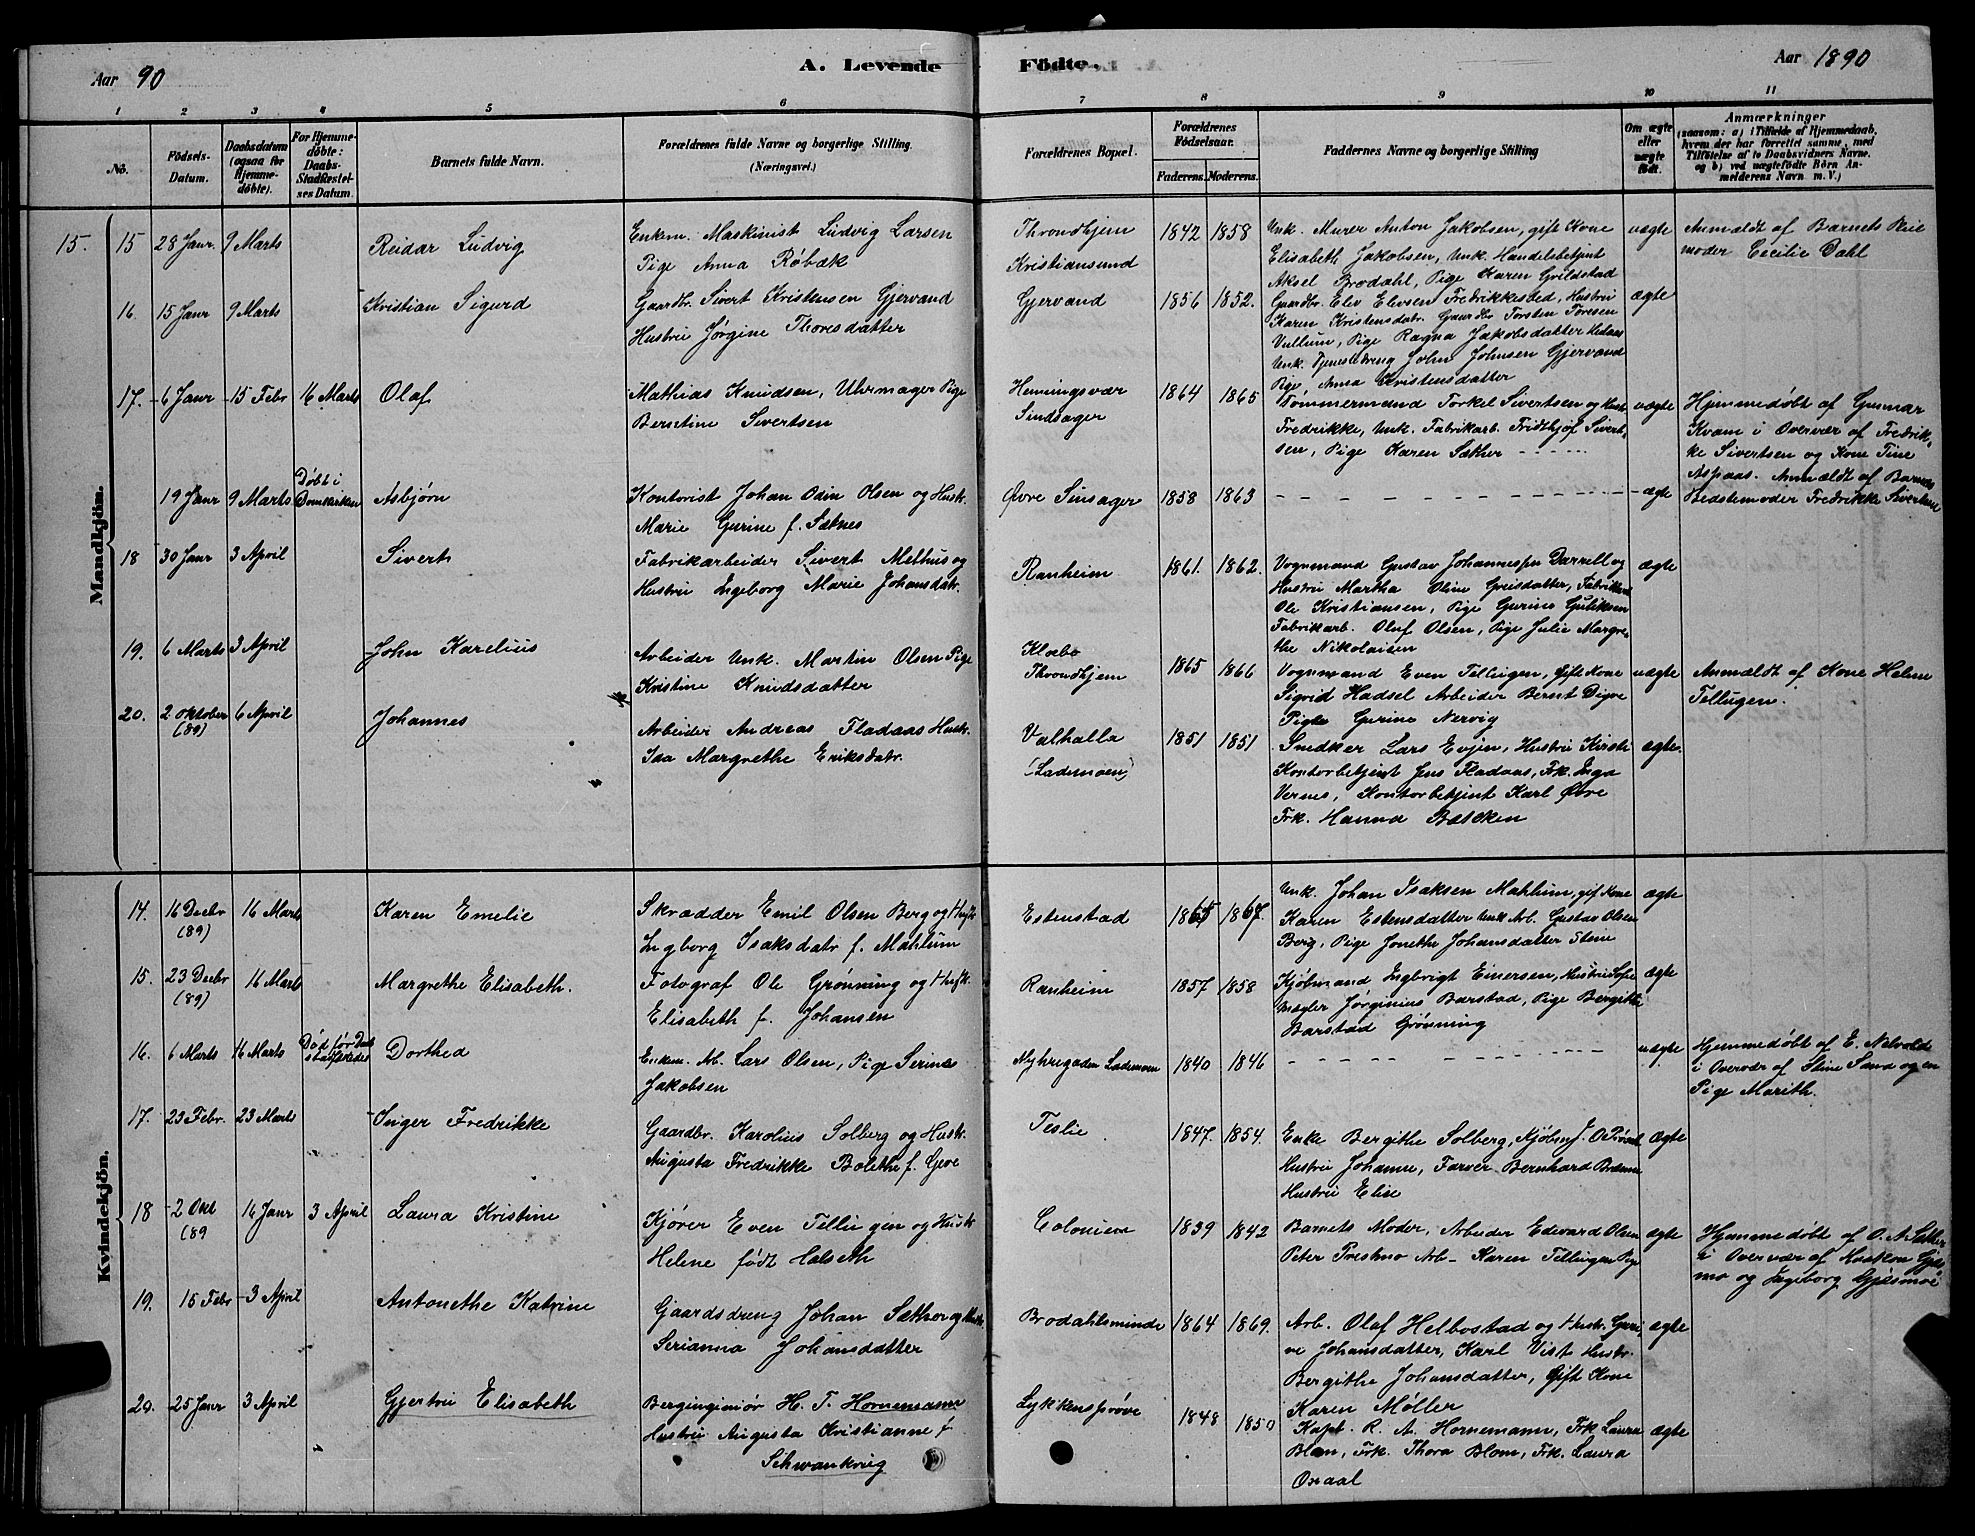 Aar 90
A. Levende Födte.
Aar 1890
1 2 3 4 5 6 7 8 9 10 11
No.
Födsels-Datum.
Daabsdatum (ogsaa för Hjemme-döbte).
For Hjemme-döbte: Daabs-Stadfæstel-ses Datum.
Barnets fulde Navn.
Forældrenes fulde Navne og borgerlige Stilling.
(Næringsvei.)
Forældrenes Bopæl.
Forældrenes Födselsaar.
Faderens. Moderens.
Faddernes Navne og borgerlige Stilling
Om ægte eller uægte födt.
Anmærkninger
(saasom: a) i Tilfælde af Hjemmedaab,
hvem der har forrettet samme, med
Tilföielse af to Daabsvidners Navne,
og b) ved uægtefödte Börn An-
melderens Navn m. V.)
Mandkjön.
15. 15 28 Janr. 9 Marts
Reidar Ludvig
Enkem. Maskinist Ludvig Larsen
Pige Anna Röbæk
Throndhjem
Kristiansund
1842 1858
Unk. Murer Anton Jakobsen, gift Kone
Elisabeth Jakobsen, Unk. Handelsbetjent
Aksel Brodahl, Pige Karen Grildstad
uægte
Anmældt af Barnets Pleie
moder Cecilie Dahl
16. 15 Janr 9 Marts
Kristian Sigurd
Gaardbr. Sivert Kristensen Gjervand
Hustru Jørgine Thoresdatter
Gjervand
1856 1852.
Gaardbr. Elev Elevsen Fredrikkested, Hustru
Karen Kristensdatr. Gaardbr Torsten Toresen
Vullum, Pige Ragna Jakobsdatter
Unk. Tjenestedreng John Johnsen Gjervand
Pige Anna Kristensdatter
ægte
17. 6 Janr 15 Febr 16 Marts
Olaf
Mathias Knudsen, Uhrmager Pige
Berntine Sivertsen
Henningsvær
Sindsager
1864 1865
Tømmermand Torkel Sivertsen og Hust.
Fredrikke, Unk. Fabrikarb. Fridthjof Sivert-
sen, Pige Karen Sæther
uægte
Hjemmedøbt af Gunnar
Kvam i Overvær af Fredrik-
ke Sivertsen og Kone Tine
Aspaas. Anmældt af Barnets
Bedstemoder Fredrikke Sivertsen
19 Janr 9 Marts
Døbt i
Domkirken
Asbjørn
Kontorist Johan Odin Olsen og Hustr.
Marie Gurine f. Sætnes
Øvre Sinsager
1858 1863
ægte
18 30 Janr 3 April
Sivert
Fabrikarbeider Sivert Methus og
Hustru Ingeborg Marie Johansdatr.
Ranheim
1861. 1862.
Vognmand Gustav Johannessen Darrell og
Hustru Martha Oline Greisdatter, Fabrikarb
Ole Kristiansen, Pige Gurine Guliksen
Fabrikarb. Oluf Olsen, Pige Julie Margre-
the Nikolaisen
ægte
19. 6 Marts 3 April
John Karelius
Arbeider Unk. Martin Olsen Pige
Kristine Knudsdatter
Klæbo
Throndhjem
1865 1866
Vognmand Even Tellugen, Gift Kone
Sigrid Hadsel Arbeider Bernt Digre
Pige Gurine Nervig
uægte
Anmældt af Kone Helene
Tellugen.
20. 2 Oktober 6 April
(89)
Johannes
Arbeider Andreas Fladaas Hustr.
Ida Margrethe Eriksdatr.
Valhalla
(Lademoen)
1851 1851
Snedker Lars Evjen, Hustru Kirsti
Kontorbetjent Jens Fladaas, Frk. Inga
Vernes, Kontorbetjent Karl Øvre
Frk. Hanna Bætcken
ægte.
Kvindekjön.
14. 16 Decbr 16 Marts
(89)
Karen Emelie
Skrædder Emil Olsen Berg og Hust.
Ingborg Isaksdatr f. Mahlum
Estenstad
1865 1867.
Unk. Johan Isaksen Mahlum, gift Kone
Karen Estensdatter Unk Arb. Gustav Olsen
Berg, Pige Jonetha Johansdatter Stene
ægte
15. 23 Decbr 16 Marts
(89)
Margrethe Elisabeth.
Fotograf Ole Grønning og Hust.
Elisabeth f. Johansen
Ranheim
1857 1858
Kjøbmand Ingbrigt Einersen, Hustru Sofie
Mægler Jørginius Barstad, Pige Bergithe
Barstad Grønning
ægte
16. 6 Marts 16 Marts
Død før Daab
stadfæstedes
Dorthea
Enkem. Arb. Lars Olsen, Pige Serine
Jakobsen
Nyhregaden Lademoen
1840 1846
uægte
Hjemmedøbt af E. Nelvolde
i Overvær af Stine Sand og en
Pige Marith.
17. 23 Febr. 23 Marts
Inger Fredrikke
Gaardbr. Karolius Solberg og Hustr.
Augusta Fredrikke Bolethe f. Geve
Teslie
1847. 1854.
Enke Bergithe Solberg, Kjøbm J. O.
Hustru Johanne, Farver Bernhard
Hustru Elise
Ægte
18 2 Okt 16 Janr 3 April
(89
Laura Kristine
Kjører Even Tellugen og Hustr
Helene født Halseth
Colonien
1839 1842
Barnets Moder, Arbeider Edevard Olsen
Peter Prestmo Arb- Karen Tellingen Pige
ægte
Hjemmedøbt af O. A. Sæther
i Overvær af Haakon Gjøs-
mo og Ingeborg Gjøsmoe
19. 15 Febr 3 April
Antonethe Katrine
Gaardsdreng Johan Sæther og Hust.
Serianna Johansdatter
Brodahlsminde
1864 1869.
Arb. Olaf Helbostad og Hustr. Guri-
ne Johansdatter, Karl Vist Hustr.
Bergithe Johansdatter, Gift Kone
Karen Møller
ægte
20. 25 Janr 3 April
Gjertru Elisabeth
Bergingeniør H. T. Hornemann
Hustru Augusta Kristianne f
Schwankrug
Lykkensprøve
1848 1850
Kapt. R. A. Hornemann, Frk Laura
Blom, Frk. Thora Blom, Frk. Laura
Osaal
ægte